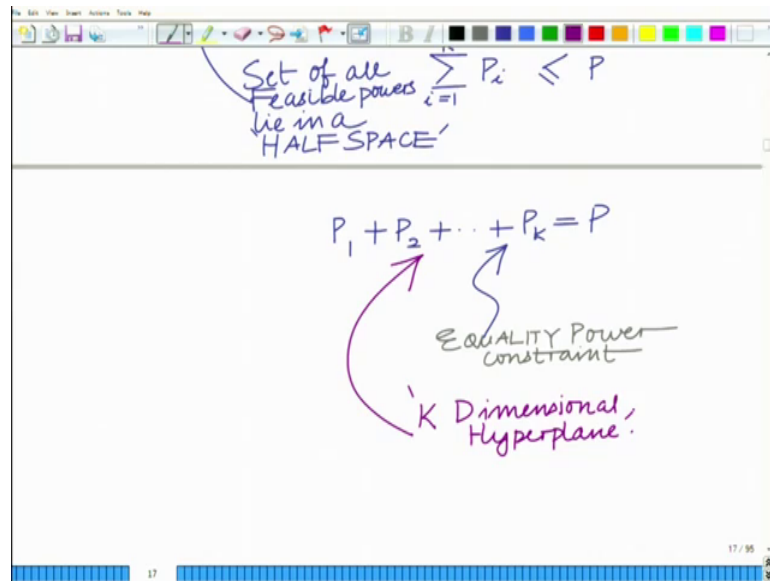 File Edit View Insert Actions Tools Help
B I
Set of all
Feasible powers ∑ i=1 P_i ≤ P
lie in a
'HALFSPACE'
P_1 + P_2 + ·· + P_K = P
EQUALITY Power
constraint
'K Dimensional,
Hyperplane.
17 / 95
17